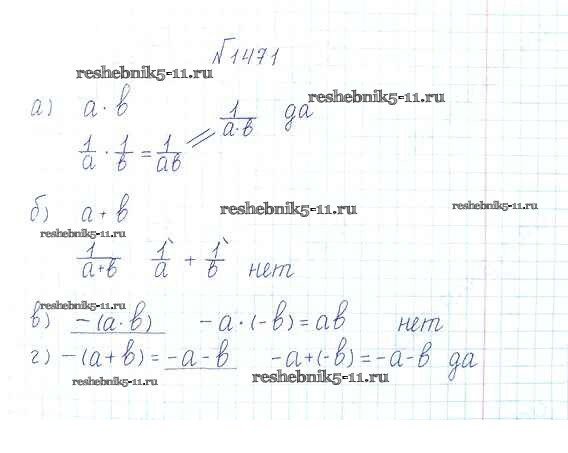 №1471
reshebnik5-11.ru
а) a · b 1/(a·b) да
reshebnik5-11.ru
1/a · 1/b = 1/ab
б) a + b
reshebnik5-11.ru
reshebnik5-11.ru
reshebnik5-11.ru
1/(a+b) 1/a + 1/b нет
reshebnik5-11.ru
в) -(a · b) -a · (-b) = ab нет
г) -(a + b) = -a - b -a + (-b) = -a - b да
reshebnik5-11.ru
reshebnik5-11.ru